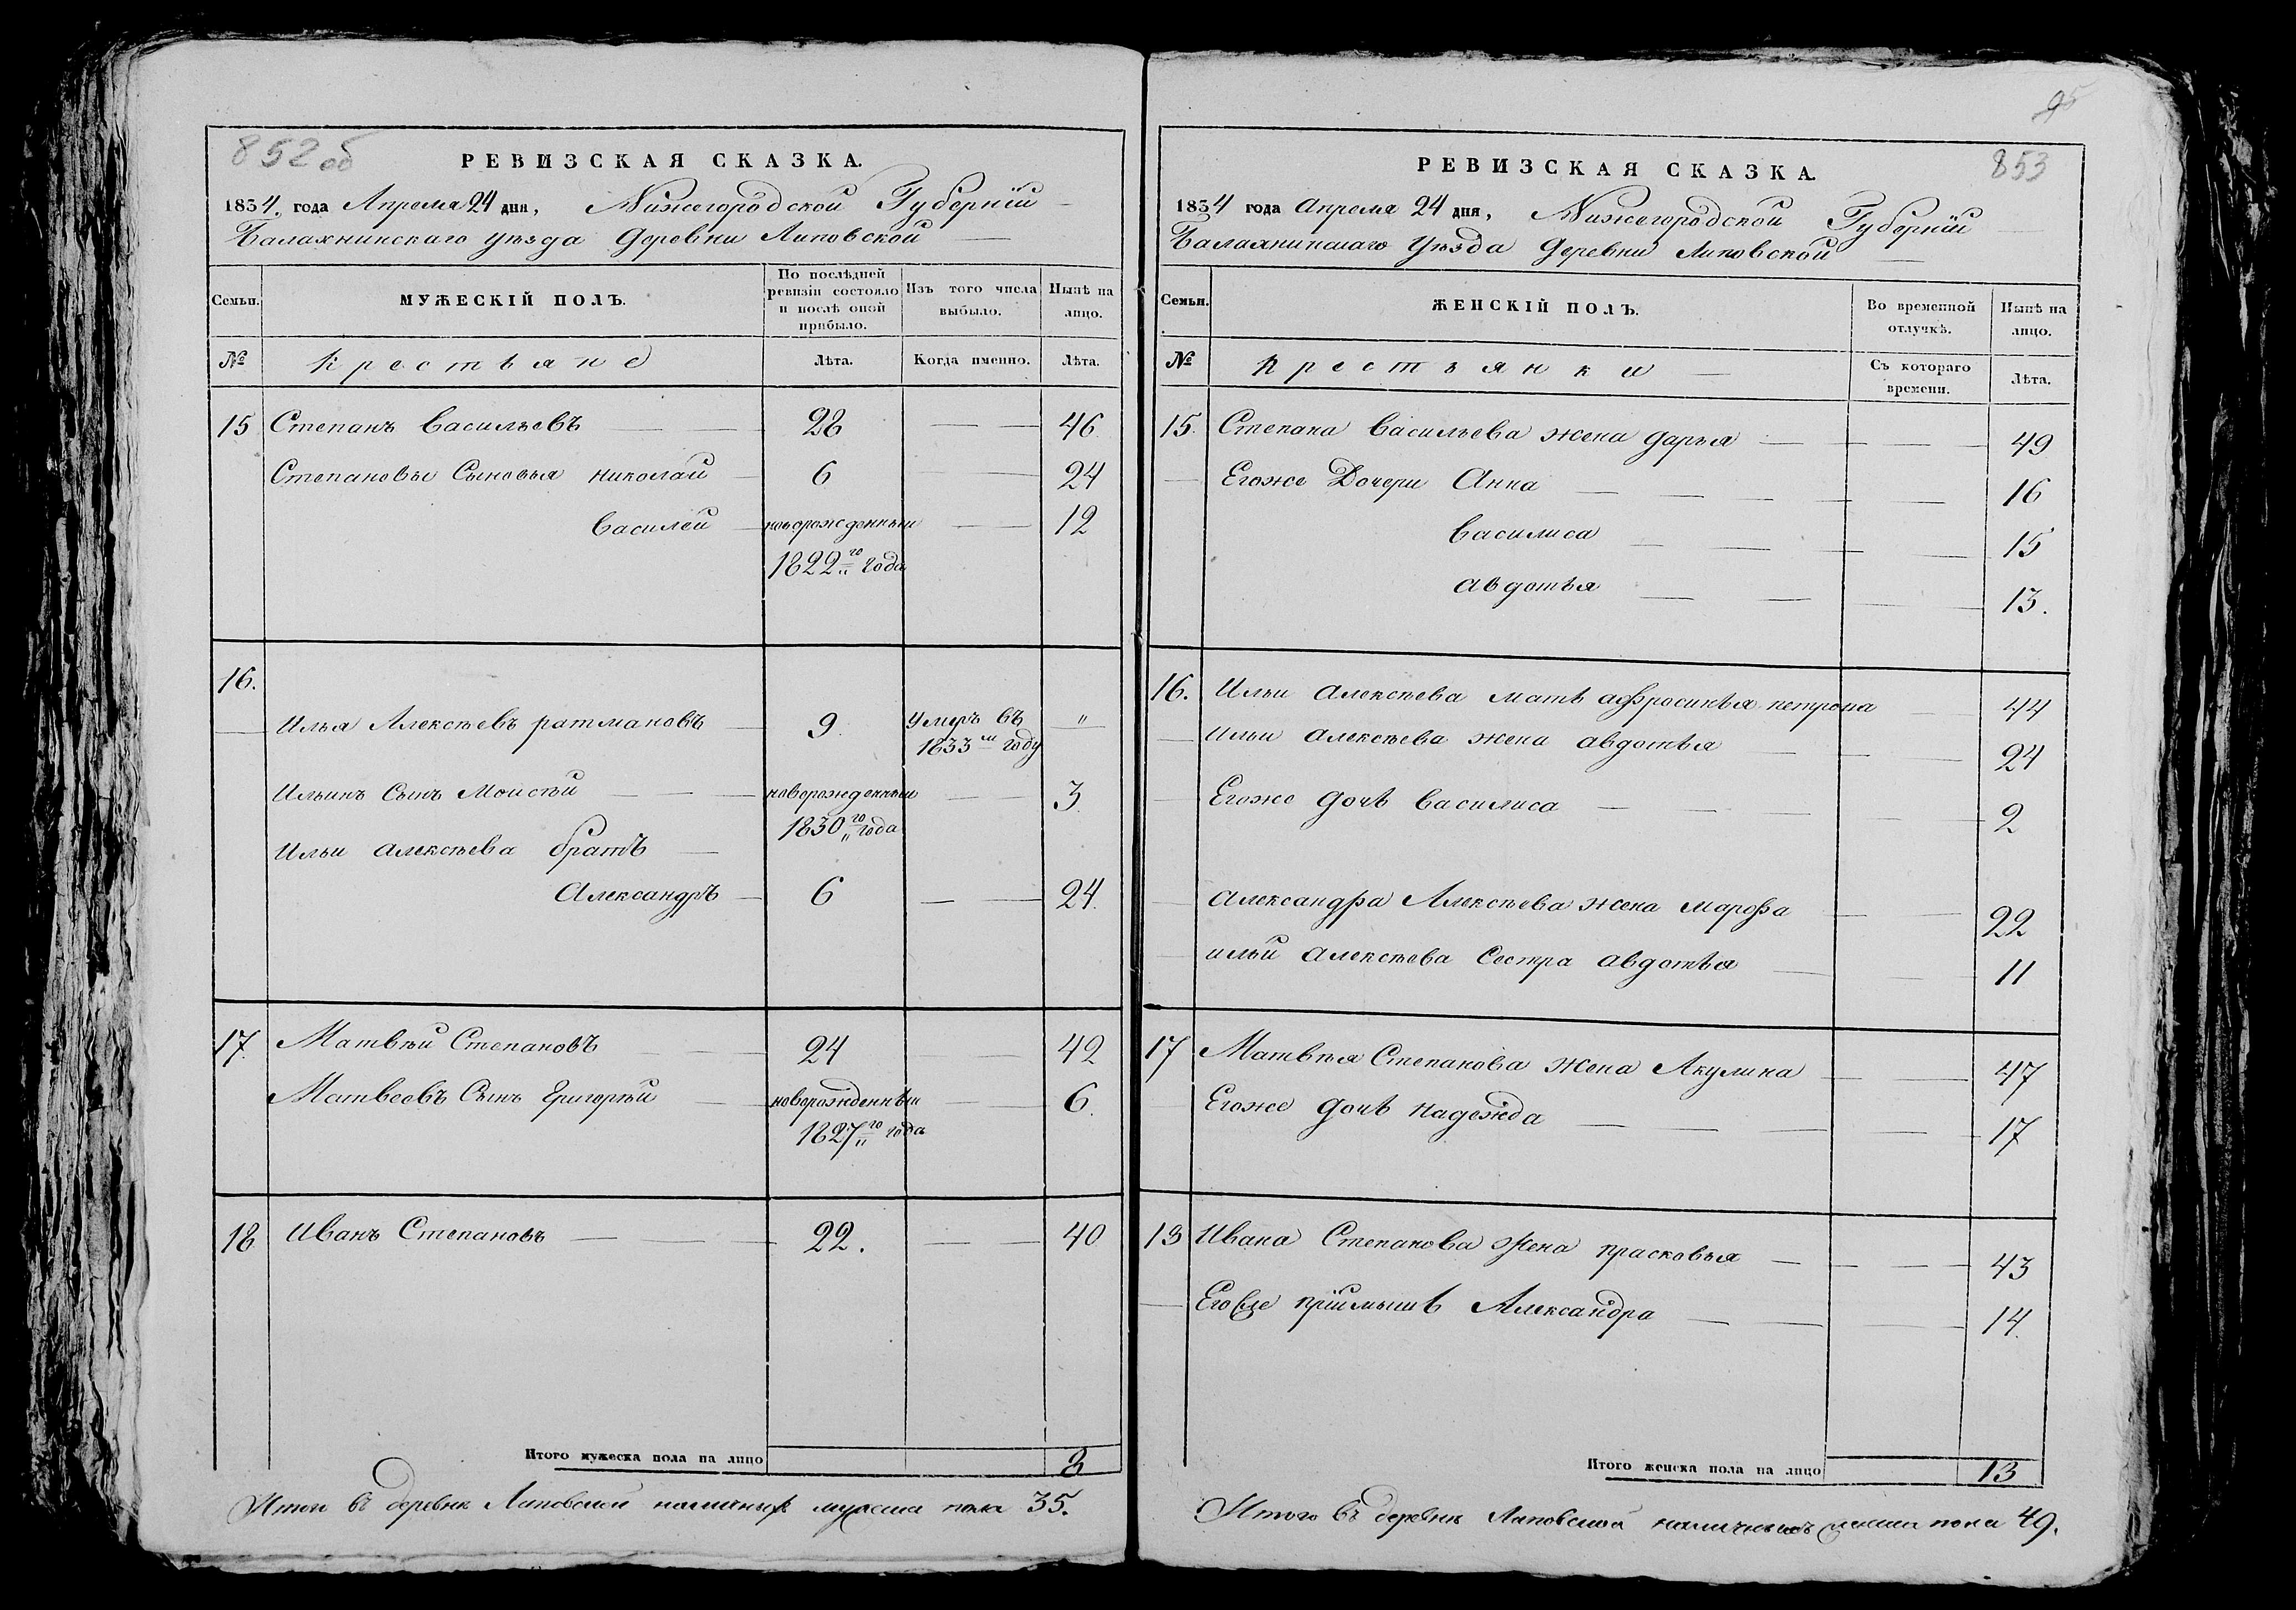 852 об
РЕВИЗСКАЯ СКАЗКА.
1834. года Апреля 24 дня, Нижегородской Губерніи
Балахнинскаго уѣзда деревни Липовской
Семьи.
МУЖЕСКІЙ ПОЛЪ.
По послѣдней ревизіи состояло и послѣ оной прибыло.
Изъ того числа выбыло.
Нынѣ на лицо.
№
Крестьяне
Лѣта.
Когда именно.
Лѣта.
15 Степанъ Васильевъ — 28 — 46
Степановы Сыновья Николай — 6 — 24
Василей — новорожденный — 12
1822го года
16.
Илья Алексѣевъ ратмановъ — 9. умеръ въ — "
1833м году
Ильинъ Сынъ Моисѣй — новорожденный — 3
1830го года
Ильи алексѣева братъ —
Александръ — 6 — 24.
17. Матвѣй Степановъ — 24 — 42
Матвеевъ Сынъ Григорѣй — новорожденный — 6.
1827го года
18 Иванъ Степановъ — 22. — 40
Итого мужеска пола на лицо 8
Итого въ деревнѣ Липовской наличныхъ мужеска пола 35.
95
853
РЕВИЗСКАЯ СКАЗКА.
1834 года Апреля 24 дня, Нижегородской Губерніи
Балахнинскаго Уѣзда деревни Липовской
Семьи.
ЖЕНСКІЙ ПОЛЪ.
Во временной отлучкѣ.
Нынѣ на лицо.
№
Крестьянки
Съ котораго времени.
Лѣта.
15. Степана Васильева жена дарья — 49
Егоже Дочери Анна — 16
Василиса — 15
авдотья — 13.
16. Ильи алексѣева мать афросинья петрова — 44
Ильи алексѣева жена авдотья — 24
Егоже дочь Василиса — 2
александра Алексѣева жена марфа — 22
ильи алексѣева Сестра авдотья — 11
17 Матвѣя Степанова жена Акулина — 47
Егоже дочь Надежда — 17
18 Ивана Степанова жена прасковья — 43
Егоже пріимышъ Александра — 14.
Итого женска пола на лицо 13
Итого въ деревнѣ Липовской наличныхъ женска пола 49.